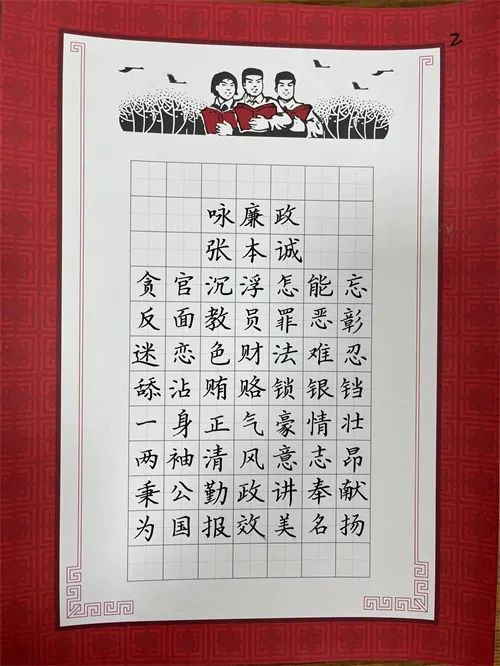 2
咏廉政
张本诚
贪官沉浮怎能忘
反面教员罪恶彰
迷恋色财法难忍
舔沾贿赂锁银铛
一身正气豪情壮
两袖清风意志昂
秉公勤政讲奉献
为国报效美名扬